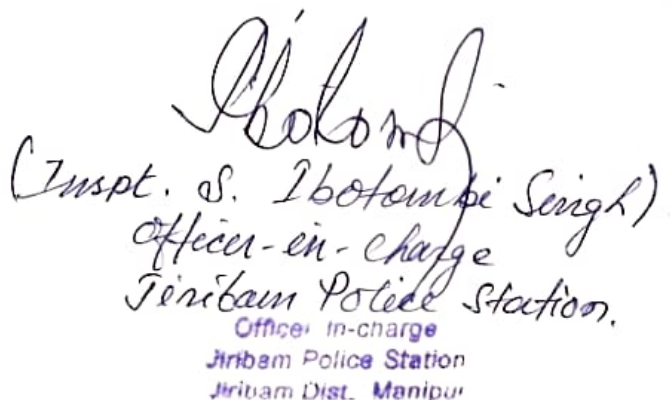 Ibotombi
(Inspt. S. Ibotombi Singh)
Officer-in-Charge
Jiribam Police Station.
Officer In-charge
Jiribam Police Station
Jiribam Dist. Manipur